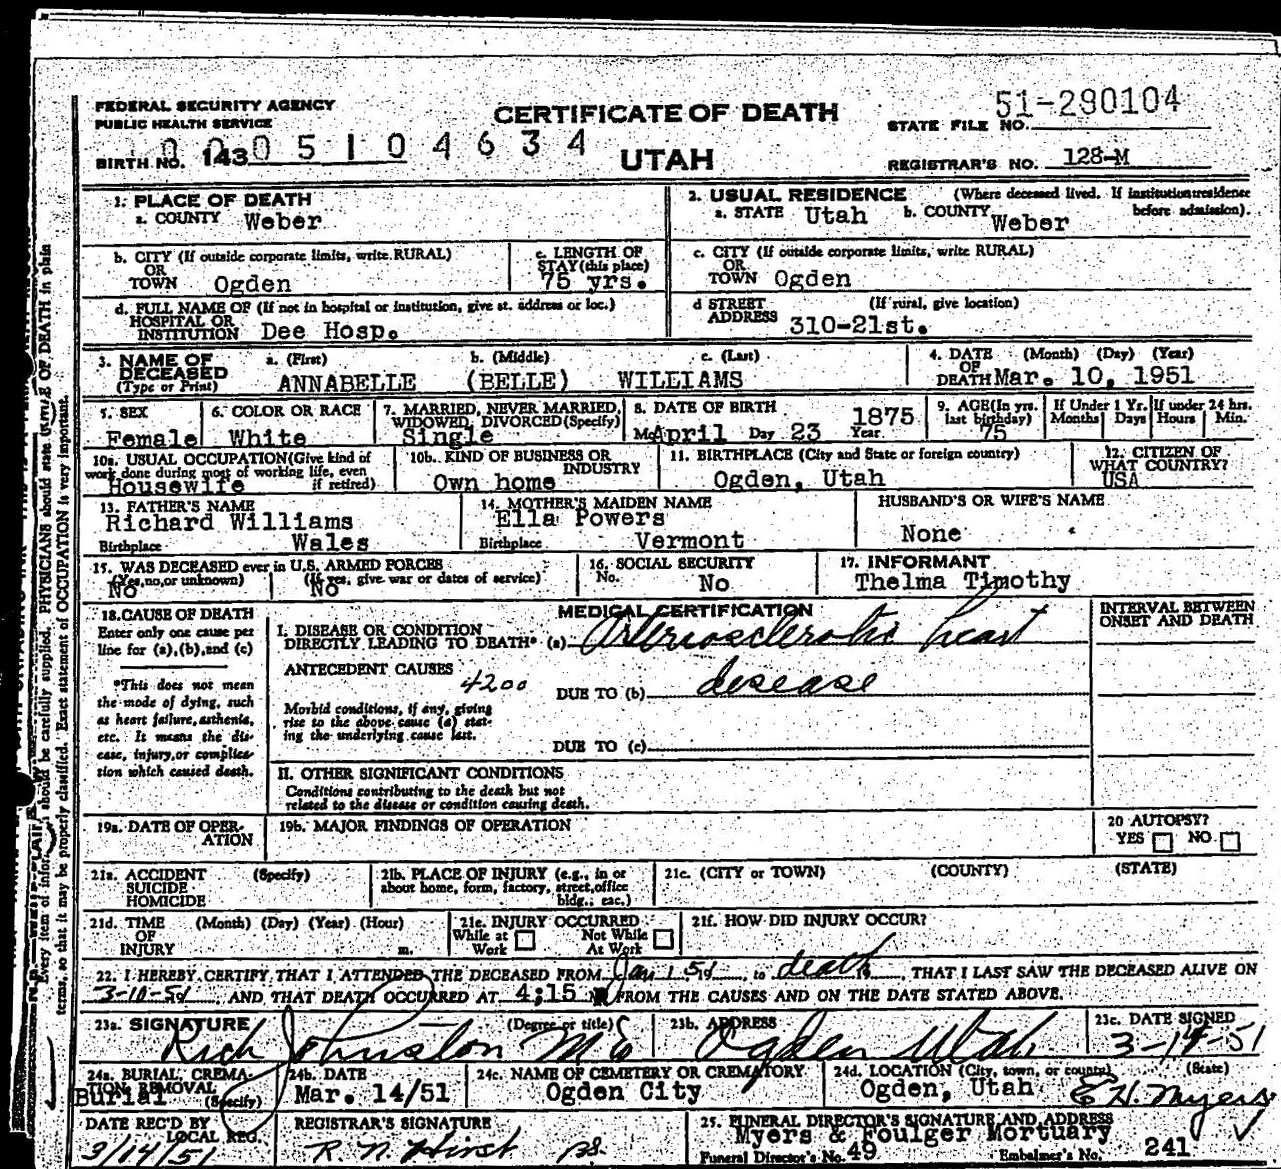 FEDERAL SECURITY AGENCY
PUBLIC HEALTH SERVICE
CERTIFICATE OF DEATH
UTAH
STATE FILE NO. 51-290104
BIRTH NO. 143 0005104634
REGISTRAR'S NO. 128-M
1. PLACE OF DEATH
a. COUNTY Weber
2. USUAL RESIDENCE (Where deceased lived. If institution: residence before admission).
a. STATE Utah b. COUNTY Weber
b. CITY (If outside corporate limits, write RURAL)
OR
TOWN Ogden
c. LENGTH OF
STAY (this place)
75 yrs.
c. CITY (If outside corporate limits, write RURAL)
OR
TOWN Ogden
d. FULL NAME OF (If not in hospital or institution, give st. address or loc.)
HOSPITAL OR
INSTITUTION Dee Hosp.
d STREET (If rural, give location)
ADDRESS 310-21st.
3. NAME OF DECEASED (Type or Print)
a. (First) b. (Middle) c. (Last)
ANNABELLE (BELLE) WILLIAMS
4. DATE OF DEATH (Month) (Day) (Year)
Mar. 10, 1951
5. SEX
Female
6. COLOR OR RACE
White
7. MARRIED, NEVER MARRIED, WIDOWED, DIVORCED (Specify)
Single
8. DATE OF BIRTH
Mo April Day 23 Year 1875
9. AGE (In yrs. last birthday)
75
If Under 1 Yr. Months Days
If under 24 hrs. Hours Min.
10a. USUAL OCCUPATION (Give kind of work done during most of working life, even if retired)
Housewife
10b. KIND OF BUSINESS OR INDUSTRY
Own home
11. BIRTHPLACE (City and State or foreign country)
Ogden, Utah
12. CITIZEN OF WHAT COUNTRY?
USA
13. FATHER'S NAME
Richard Williams
Birthplace Wales
14. MOTHER'S MAIDEN NAME
Ella Powers
Birthplace Vermont
HUSBAND'S OR WIFE'S NAME
None
15. WAS DECEASED ever in U.S. ARMED FORCES
(Yes, no, or unknown) (If yes, give war or dates of service)
No No
16. SOCIAL SECURITY
No. No
17. INFORMANT
Thelma Timothy
18. CAUSE OF DEATH
Enter only one cause per line for (a), (b), and (c)
*This does not mean the mode of dying, such as heart failure, asthenia, etc. It means the disease, injury, or complication which caused death.
MEDICAL CERTIFICATION
INTERVAL BETWEEN ONSET AND DEATH
I. DISEASE OR CONDITION
DIRECTLY LEADING TO DEATH* (a) Arteriosclerotic heart
ANTECEDENT CAUSES
4200 DUE TO (b) desease
Morbid conditions, if any, giving rise to the above cause (a) stating the underlying cause last.
DUE TO (c)
II. OTHER SIGNIFICANT CONDITIONS
Conditions contributing to the death but not related to the disease or condition causing death.
19a. DATE OF OPERATION
19b. MAJOR FINDINGS OF OPERATION
20 AUTOPSY?
YES NO
21a. ACCIDENT (Specify)
SUICIDE
HOMICIDE
21b. PLACE OF INJURY (e.g., in or about home, form, factory, street, office bldg., eac.)
21c. (CITY or TOWN) (COUNTY) (STATE)
21d. TIME (Month) (Day) (Year) (Hour)
OF
INJURY m.
21e. INJURY OCCURRED
While at Work Not While At Work
21f. HOW DID INJURY OCCUR?
22. I HEREBY CERTIFY THAT I ATTENDED THE DECEASED FROM Jan 1 51, to death, THAT I LAST SAW THE DECEASED ALIVE ON
3-10-51 AND THAT DEATH OCCURRED AT 4:15 FROM THE CAUSES AND ON THE DATE STATED ABOVE.
23a. SIGNATURE (Degree or title)
Rich Johnston
23b. ADDRESS
Ogden Utah
23c. DATE SIGNED
3-14-51
24a. BURIAL, CREMATION, REMOVAL (Specify)
Burial
24b. DATE
Mar. 14/51
24c. NAME OF CEMETERY OR CREMATORY
Ogden City
24d. LOCATION (City, town, or county) (State)
Ogden, Utah
E H. Myers
DATE REC'D BY LOCAL REG.
3/14/51
REGISTRAR'S SIGNATURE
R. N. Hirst
25. FUNERAL DIRECTOR'S SIGNATURE AND ADDRESS
Myers & Foulger Mortuary
Funeral Director's No. 49 Embalmer's No. 241
Every item of should be carefully supplied. PHYSICIANS should state CAUSE OF DEATH in plain
terms, so that it may be properly classified. Exact statement of OCCUPATION is very important.